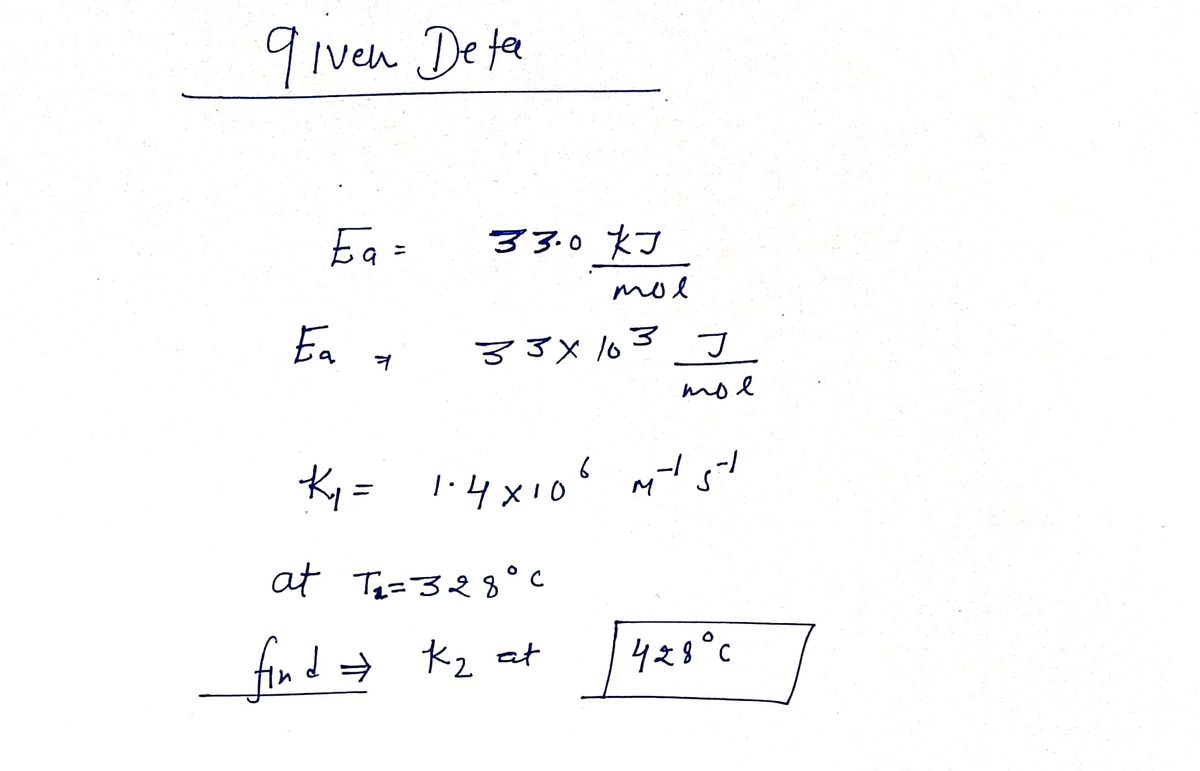 given Deta
Ea = 33.0 KJ/mol
Ea = 33 × 10³ J/mol
K₁ = 1.4 × 10⁶ M⁻¹ s⁻¹
at T₁ = 328°C
find ⇒ K₂ at 428°C